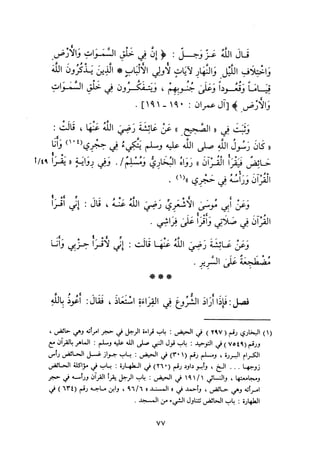 قال اللَّهُ عَزَّ وَجَـلَّ : ﴿ إنَّ فِي خَلْقِ السَّمَوَاتِ وَالأَرْضِ
وَاخْتِلَافِ اللَّيْلِ وَالنَّهَارِ لَآيَاتٍ لأُولِي الأَلْبَابِ * الَّذِينَ يَذْكُرُونَ اللَّهَ
قِيَـامَـاً وَقُعُـودَاً وَعَلَىٰ جُنُـوبِهِمْ ، وَيَتَفَكَّـرُونَ فِي خَلْقِ السَّمَـوَاتِ
وَالأَرْضِ ﴾ [آل عمران : ١٩٠ - ١٩١] .
وَثَبَتَ فِي « الصَّحِيحِ » عَنْ عَائِشَةَ رَضِيَ اللَّهُ عَنْهَا ، قَالَتْ :
« كَانَ رَسُولُ اللَّهِ صلى الله عليه وسلم يَتَّكِيءُ فِي حِجْرِي وَأَنَا
حَائِضٌ فَيَقْرَأُ القُرْآنَ » رَوَاهُ البُخَارِيُّ وَمُسْلِمٌ / . وَفِي رِوَايَةٍ « يَقْـرَأُ ٤٩/أ
القُرْآنَ وَرَأْسُهُ فِي حَجْرِي »(١) .
وَعَنْ أَبِي مُوسَىٰ الأَشْعَرِيِّ رَضِيَ اللَّهُ عَنْـهُ ، قَالَ : إِنِّي أَقْـرَأُ
القُرْآنَ فِي صَلَاتِي وَأَقْرَأُ عَلَىٰ فِرَاشِي .
وَعَنْ عَـائِشَةَ رَضِيَ اللَّهُ عَنْهَـا قَالَتْ : إِنِّي لأَقْـرَأُ حِزْبِي وَأَنَـا
مُضْطَجِعَةٌ عَلَىٰ السَّرِيرِ .
***
فصل : فَإِذَا أَرَادَ الشُّرُوعَ فِي القِرَاءَةِ اسْتَعَاذَ ، فَقَالَ : أَعُوذُ بِاللَّهِ
(١) البخاري رقم (٢٩٧) في الحيض : باب قراءة الرجل في حجر امرأته وهي حائض ،
ورقم (٧٥٤٩) في التوحيد : باب قول النبي صلى الله عليه وسلم : الماهر بالقرآن مع
الكـرام البـررة ، ومسلم رقم (٣٠١) في الحيض : بـاب جـواز غسـل الحـائض رأس
زوجهـا ... الـخ ، وأبـو داود رقم (٢٦٠) في الـطهـارة : بـاب في مؤاكلة الحـائض
ومجامعتها ، والنسائي ١٩١/١ في الحيض : باب الرجل يقرأ القرآن ورأسـه في حجر
امرأته وهي حائض ، وأحمد في « المسند » ٩٦/٦ ، وابن ماجـه رقم (٦٣٤) في
الطهارة : باب الحائض تتناول الشيء من المسجد .
٧٧